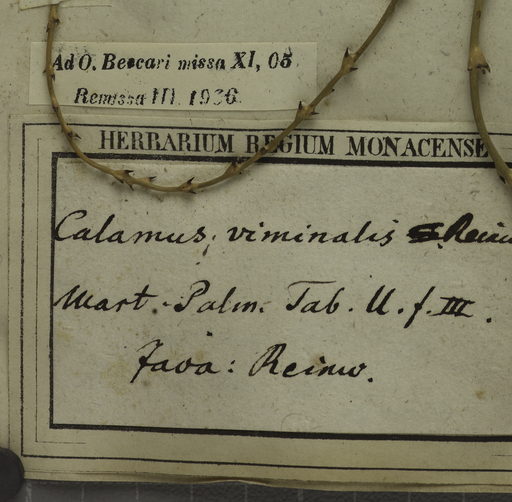 Ad O. Beccari missa XI, 05
Remissa III. 1936.
HERBARIUM REGIUM MONACENSE
Calamus viminalis Reinw
Mart. Palm. Tab. U. f. III.
Java: Reinw.